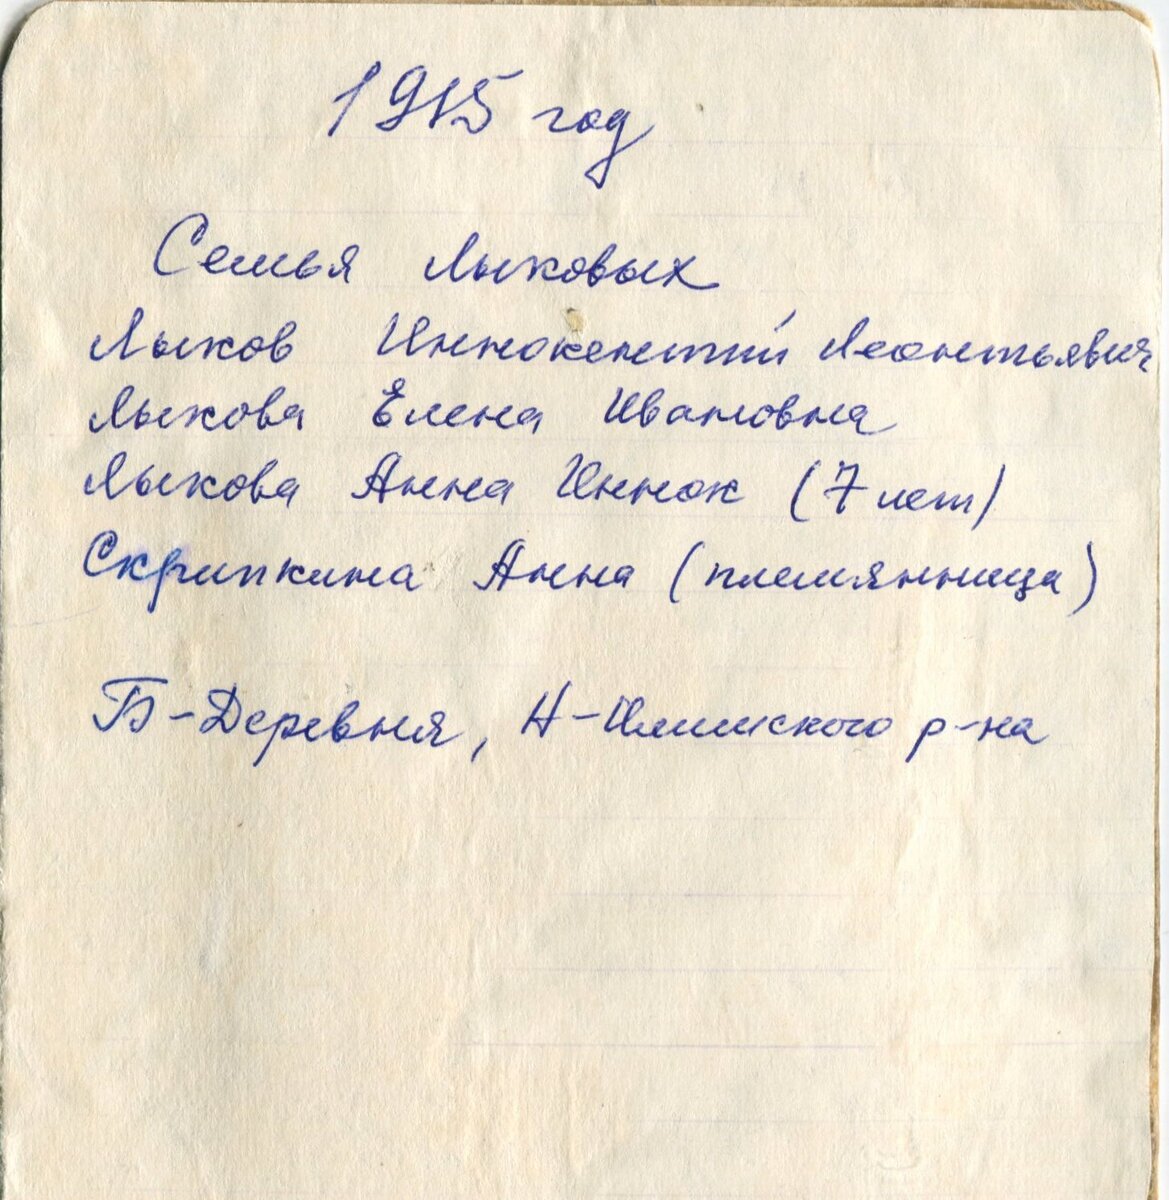 1915 год
Семья Лыковых
Лыков Иннокентий Леонтьявич
Лыкова Елена Ивановна
Лыкова Анна Иннок (7 лет)
Скрипкина Анна (племянница)
Б-Деревня, Н-Илимского р-на